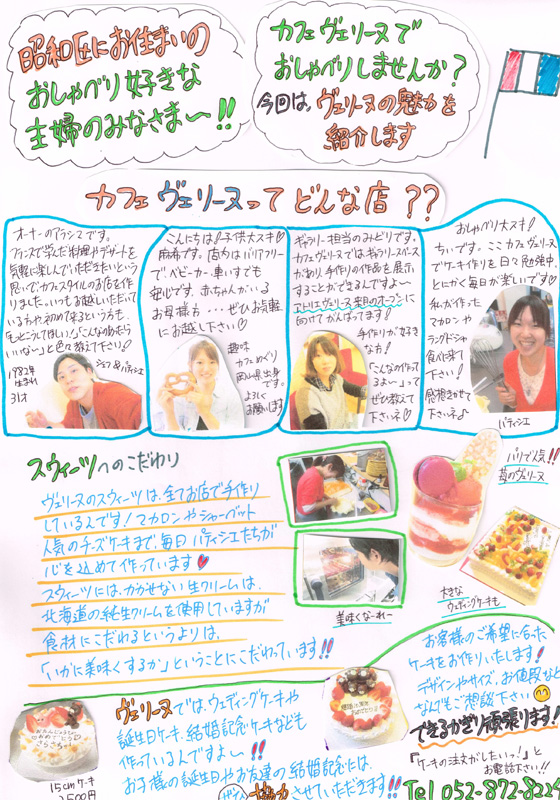 昭和区にお住まいの
おしゃべり好きな
主婦のみなさま〜!!
カフェ ヴェリーヌで
おしゃべりしませんか?
今回は、ヴェリーヌの魅力を
紹介します
カフェ ヴェリーヌって どんな店 ??
オーナーのアラシマです。
フランスで学んだ料理やデザートを
気軽に楽しんでいただきたいという
思いで、カフェスタイルのお店を作
りました。いつもお越しいただいて
いる方や、初めて来るという方も、
色々教えて下さい!
1982年
生まれ
31才
シェフ&パティシエ
こんにちは!子供大スキ♡
麻布です。店内はバリアフリー
で、ベビーカー、車いすでも
安心です。赤ちゃんがいる
お母様方…ぜひお気軽
にお越し下さい♡
趣味
カフェめぐり
岡山県出身
です。
よろしく
お願いします
ギャラリー担当のみどりです。
カフェヴェリーヌではギャラリースペース
があり、手作りの作品を展示
することができるんですよ〜
アトリエヴェリーヌ来月のオープンに
向けてがんばってます!
手作りが好き
な方!
「こんなの作っ
てるよ〜」って
ぜひ教えて
下さいネ♡
おしゃべり大スキ!
ちぃです。ここカフェヴェリーヌ
でケーキ作りを日々勉強中。
とにかく毎日が楽しいです♡
私が作った
マカロンや
ラングドシャ
食べに来て
下さい!
感想きかせて
下さいネ♪
パティシエ
スウィーツへのこだわり
ヴェリーヌのスウィーツは、全てお店で手作り
しているんです!マカロンやシャーベット
人気のチーズケーキまで、毎日パティシエたちが
心を込めて作っています♥
スウィーツには、かかせない生クリームは、
北海道の純生クリームを使用していますが
食材にこだわるというよりは、
「いかに美味くするか」ということにこだわっています!!
美味くなーれー
パリで人気!!
苺のヴェリーヌ
大きな
ウェディングケーキも
お客様のご希望に合った
ケーキをお作りいたします!
デザインやサイズ、お値段など
なんでもご相談下さい
できるかぎり頑張ります!
「ケーキの注文がしたいっ!」と
お電話下さい!!
Tel 052-872-8224
ヴェリーヌでは、ウェディングケーキや
誕生日ケーキ、結婚記念ケーキなども
作っているんですよ〜!!
お子様の誕生日やお友達の結婚記念には、
ぜひ協力させていただきます!!
15cmケーキ
2,500円